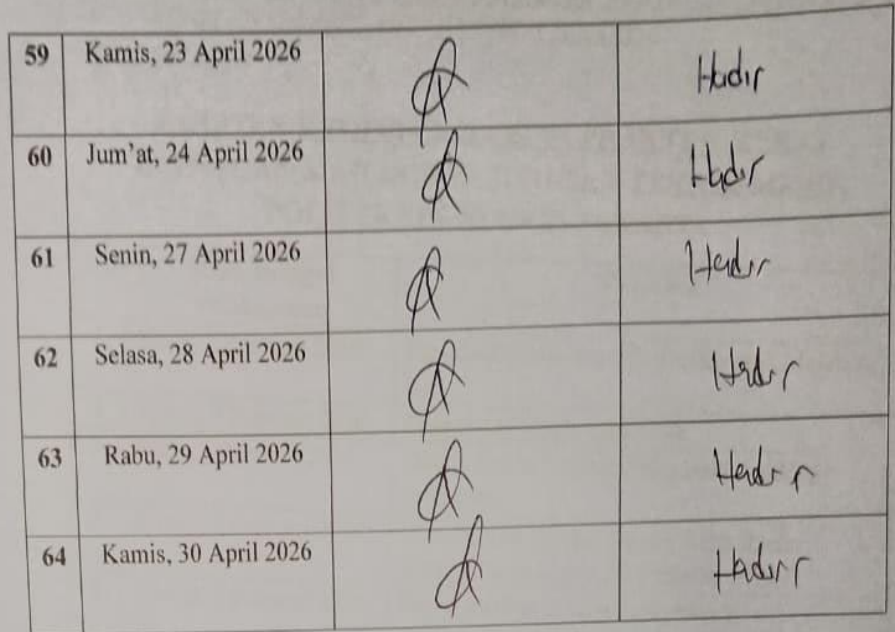 59 Kamis, 23 April 2026 Hadir
60 Jum'at, 24 April 2026 Hadir
61 Senin, 27 April 2026 Hadir
62 Selasa, 28 April 2026 Hadir
63 Rabu, 29 April 2026 Hadir
64 Kamis, 30 April 2026 Hadir